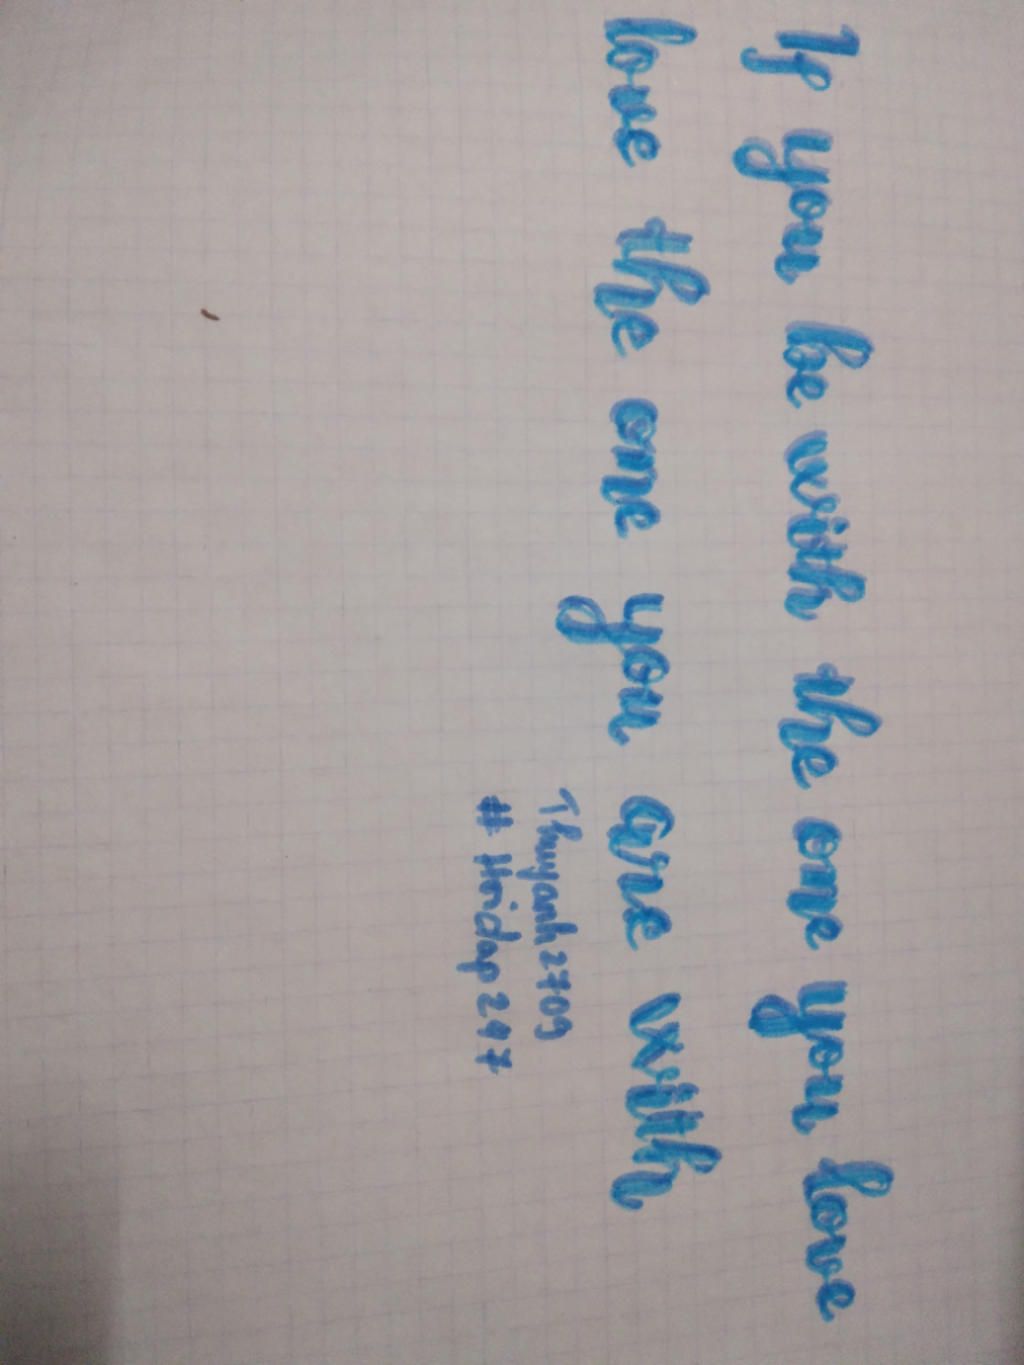 If you be with the one you love
love the one you are with
Thuyanh2709
# Hoidap247